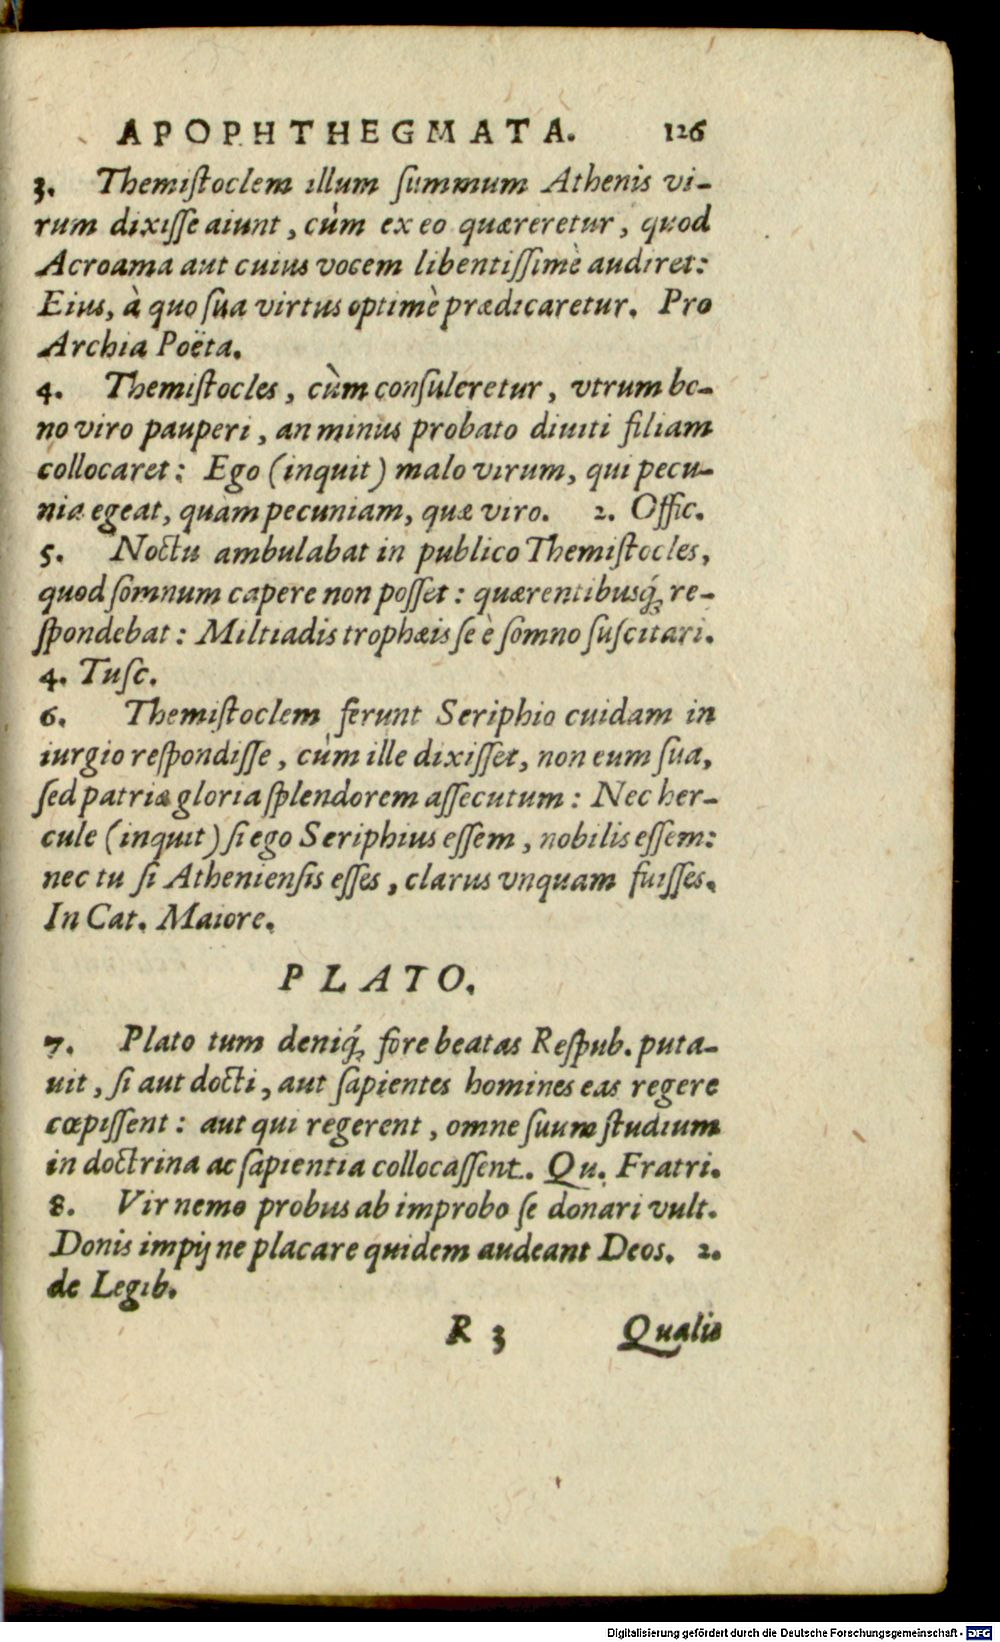 APOPHTHEGMATA. 126
3. Themiſtoclem illum ſummum Athenis vi-
rum dixiſſe aiunt, cúm ex eo quæreretur, quod
Acroama aut cuius vocem libentiſſimè audiret:
Eius, à quo ſua virtus optimè prædicaretur. Pro
Archia Poëta.
4. Themiſtocles, cùm conſuleretur, vtrum bo-
no viro pauperi, an minus probato diuiti filiam
collocaret: Ego (inquit) malo virum, qui pecu-
nia egeat, quam pecuniam, quæ viro. 2. Offic.
5. Noctu ambulabat in publico Themiſtocles,
quod ſomnum capere non poſſet: quærentibusq́; re-
ſpondebat: Miltiadis trophæis ſe è ſomno ſuſcitari.
4. Tuſc.
6. Themiſtoclem ferunt Seriphio cuidam in
iurgio reſpondiſſe, cúm ille dixiſſet, non eum ſua,
ſed patriæ gloria ſplendorem aſſecutum: Nec her-
cule (inquit) ſi ego Seriphius eſſem, nobilis eſſem:
nec tu ſi Athenienſis eſſes, clarus vnquam fuiſſes.
In Cat. Maiore.
PLATO.
7. Plato tum deniq́; fore beatas Reſpub. puta-
uit, ſi aut docti, aut ſapientes homines eas regere
cœpiſſent: aut qui regerent, omne ſuum ſtudium
in doctrina ac ſapientia collocaſſent. Qu. Fratri.
8. Vir nemo probus ab improbo ſe donari vult.
Donis impij ne placare quidem audeant Deos. 2.
de Legib.
R 3 Qualis
Digitalisierung gefördert durch die Deutsche Forschungsgemeinschaft - DFG